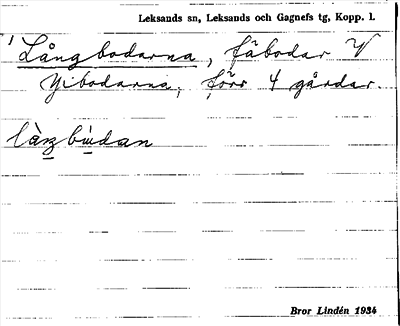 Leksands sn, Leksands och Gagnefs tg, Kopp. l.
Långbodarna, fäbodar V
Yibodarna, förr 4 gårdar.
Bror Lindén 1934